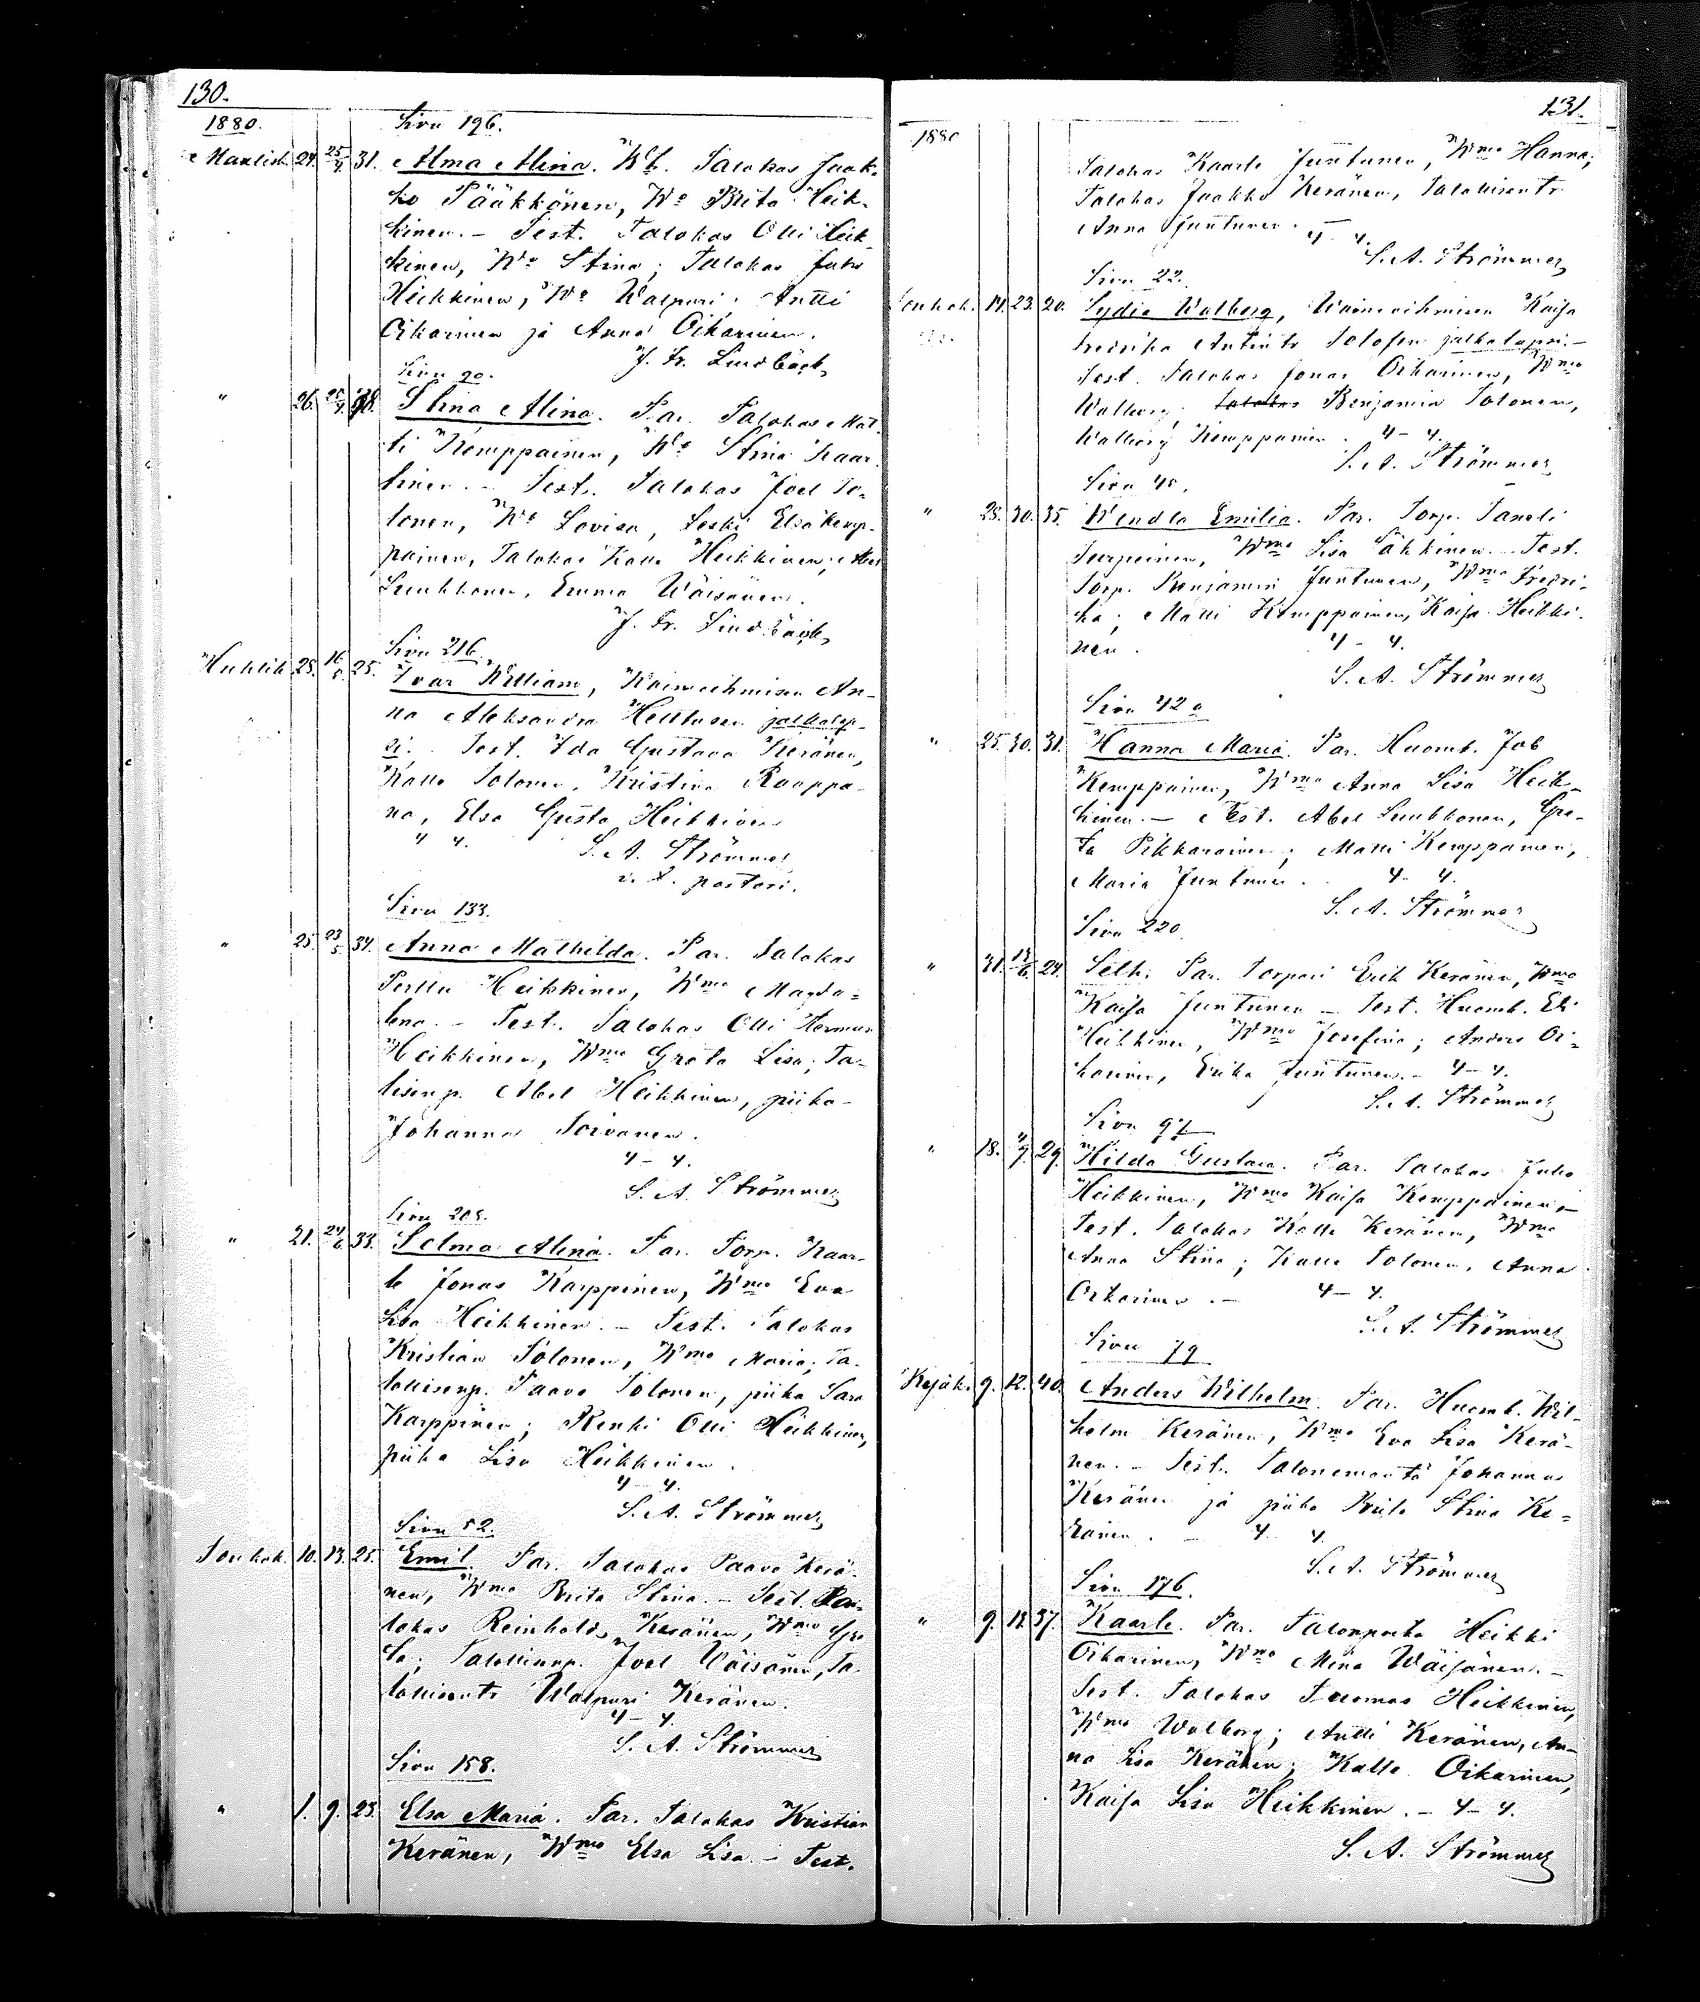 130.
1880.
Sivu 196.
Maalisk. 24. 25/4 31. Alma Alina. Wh. Talokas Jaak-
ko Pääkkönen, Wo Brita Heik-
kinen. – Test. Talokas Olli Heik-
kinen, Wo Stina; Talokas Juho
Heikkinen, Wo Walpuri; Antti
Oikarinen ja Anna Oikarinen.
J. Fr. Lindbäck,
Sivu 90.
" 26. 25/4 38. Stina Alina. Par. Talokas Mat-
ti Kemppainen, Wo Stina Kaar-
tinen. – Test. Talokas Joel To-
lonen, Wo Lovisa, Leski Elsa Kemp-
painen, Talokas Kalle Heikkinen; Abel
Leinkkonen, Emma Wäisänen.
J. Fr. Lindbäck,
Sivu 216.
Huhtik. 28. 16/5 25. Ivar William, Waivaishmisen An-
na Aleksandra Heittusen jalkalap-
si. Test. Ida Gustava Keränen,
Kalle Tolonen, Kristina Raappa-
na, Elsa Gusta Heikkinen
" 4. S. A. Strömmer
v. t. pastori.
Sivu 133.
" 25. 23/5 34. Anna Mathilda. Par. Talokas
Perttu Heikkinen, Wmo Magda-
lena. – Test. Talokas Olli Herman
Heikkinen, Wmo Greta Lisa; Ta-
lisenp. Abel Heikkinen, piika
Johanna Toivanen.
4 – 4.
S. A. Strömmer
Sivu 205.
" 21. 24/6 33. Selma Alina. Par. Torp. Kaar-
le Jonas Karppinen, Wmo Eva
Lisa Heikkinen. – Test. Talokas
Kristian Tolonen, Wmo Maria; Ta-
lollisenp. Paavo Tolonen, piika Sara
Karppinen; Renki Olli Heikkinen,
piika Lisa Heikkinen.
4 – 4.
S. A. Strömmer
Sivu 52.
Toukok. 10. 13. 25. Emil. Par. Talokas Paavo Kerä-
nen, Wmo Brita Stina. – Test. Ta-
lokas Reinhold Keränen, Wmo Gre-
ta; Talollisenp. Joel Wäisänen, Ta-
lollisentr Walpuri Keränen.
4 – 4.
S. A. Strömmer
Sivu 158.
" 1. 9. 23. Elsa Maria. Par. Talokas Kristian
Keränen, Wmo Elsa Lisa. – Test.
131.
1880
Talokas Kaarle Juntunen, Wmo Hanna;
Talokas Jaakko Keränen, Talollisentr
Anna Juntunen. 4 – 4.
S. A. Strömmer
Sivu 22.
Toukok. 14. 23. 20. Sydia Walborg, Waivaishmisen Kaisa
Fredrika Antintr Tolosen jalkalapsi. –
Test. Talokas Jonas Oikarinen, Wmo
Walborg; Talokas Benjamin Tolonen,
Walborg Kemppainen. 4 – 4.
S. A. Strömmer
Sivu 45.
" 23. 30. 35. Wendla Emilia. Par. Torp. Taneli
Turpeinen, Wmo Lisa Säkkinen. – Test.
Torp. Benjamin Juntunen, Wmo Fredri-
ka; Matti Kemppainen, Kaisa Heikki-
nen. 4 – 4.
S. A. Strömmer
Sivu 42 a
" 25. 30. 31. Hanna Maria. Par. Huomb. Job
Kemppainen, Wmo Anna Lisa Heik-
kinen. – Test. Abel Leinkkonen, Gre-
ta Pikkarainen; Matti Kemppainen,
Maria Juntunen. 4 – 4.
S. A. Strömmer
Sivu 220.
" 31. 13/6 24. Seth. Par. Torpari Erik Keränen, Wmo
Kaisa Juntunen – Test. Huomb. Eli
Heikkinen, Wmo Josefina; Anders Oi-
karinen, Erika Juntunen. – 4 – 4.
S. A. Strömmer
Sivu 97
" 18. 4/7 29. Hilda Gustava. Par. Talokas Juho
Heikkinen, Wmo Kaisa Kemppainen. –
Test. Talokas Kalle Keränen, Wmo
Anna Stina; Kalle Tolonen, Anna
Oikarinen. – 4 – 4.
S. A. Strömmer
Sivu 79
Kesäk. 9. 12. 40. Anders Wilhelm. Par. Huomb. Wil-
helm Keränen, Wmo Eva Lisa Kerä-
nen. – Test. Talonemäntä Johannas
Keränen ja piika Brita Stina Ke-
ränen. – 4 4.
S. A. Strömmer
Sivu 176.
" 9. 13. 37. Kaarle. Par. Talonpoika Heikki
Oikarinen, Wmo Mina Wäisänen. –
Test. Talokas Tuomas Heikkinen,
Wmo Walborg; Antti Keränen, An-
na Lisa Keränen; Kalle Oikarinen,
Kaisa Lisa Heikkinen. – 4 – 4.
S. A. Strömmer